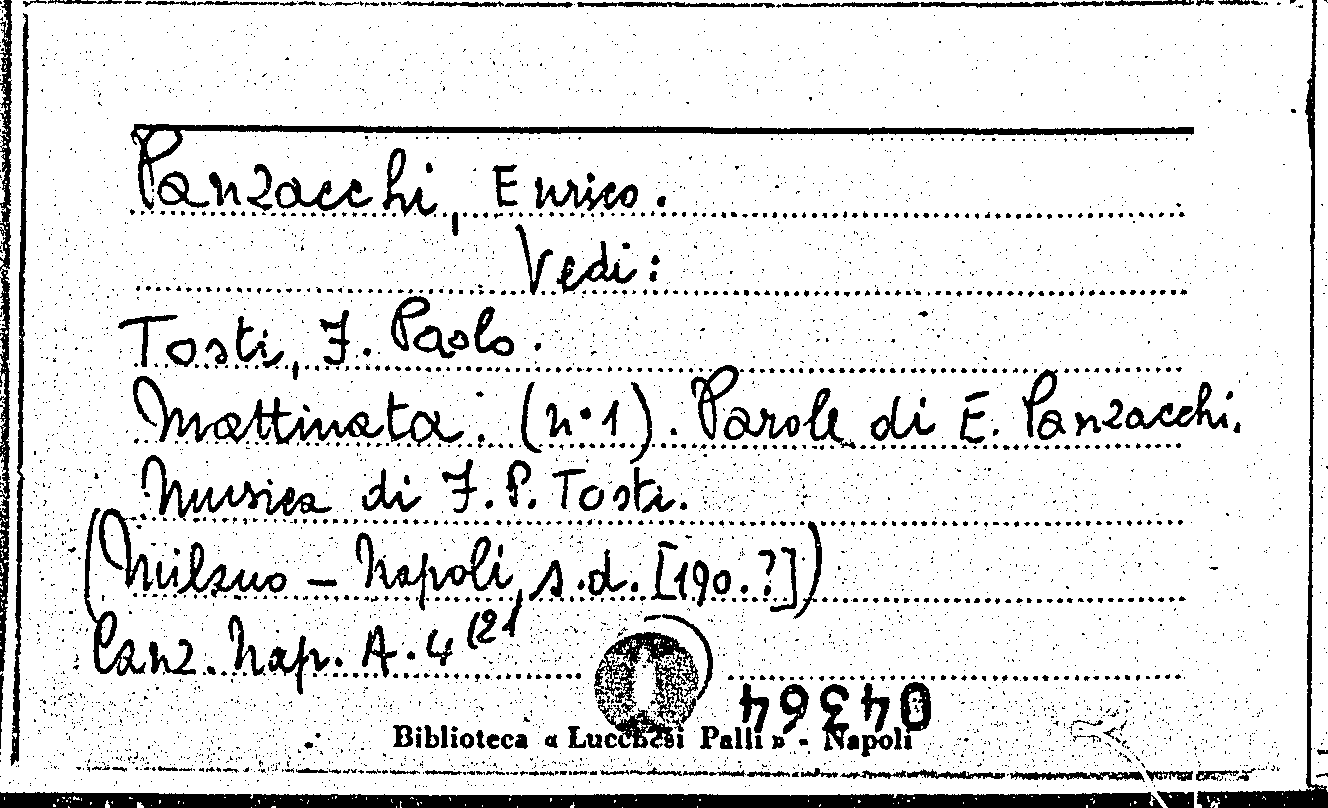 Panzacchi, Enrico.
Vedi:
Tosti, F. Paolo.
Mattinata. (n° 1). Parole di E. Panzacchi.
Musica di F. P. Tosti.
(Milano – Napoli, s.d. [190.?])
Canz. Nap. A. 4 (21
04364
Biblioteca « Lucchesi Palli » - Napoli